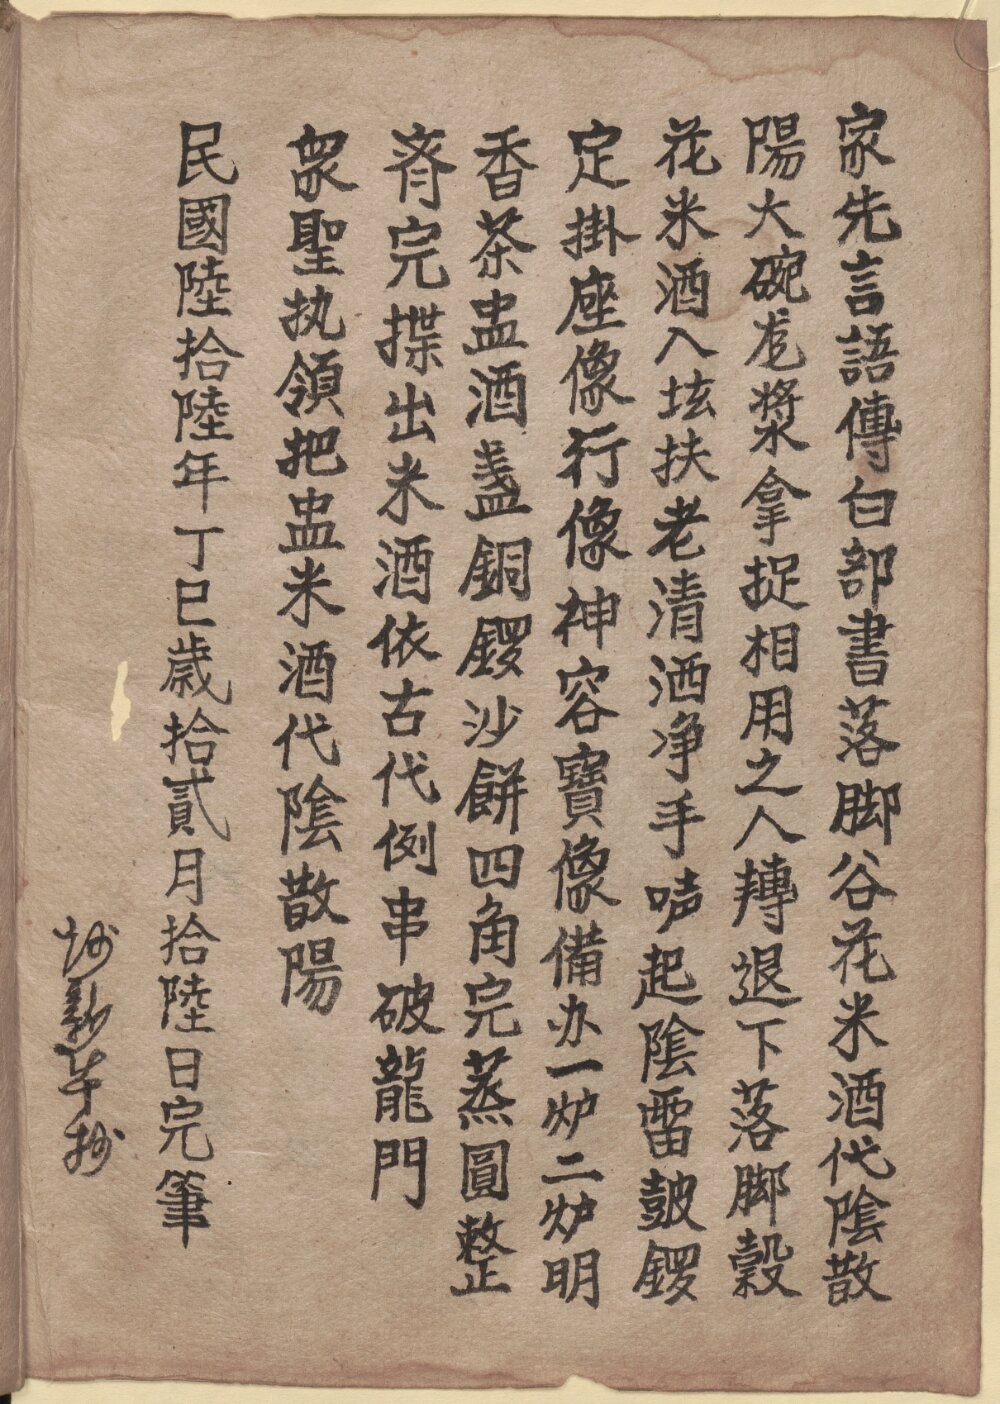 家先言語傳白部書落脚谷花米酒代陰散
陽大碗尨漿拿捉相用之人轉退下落脚穀
花米酒入坛扶老清洒净手啼起陰雷皷鑼
定掛座像行像神容寶像備办一炉二炉明
香茶盅酒盞銅鑼沙餅四角完蒸圓整
齊完揲出米酒依古代例串破龍門
衆聖执領把盅米酒代陰散陽
民國陸拾陸年丁巳歲拾貳月拾陸日完筆
抄